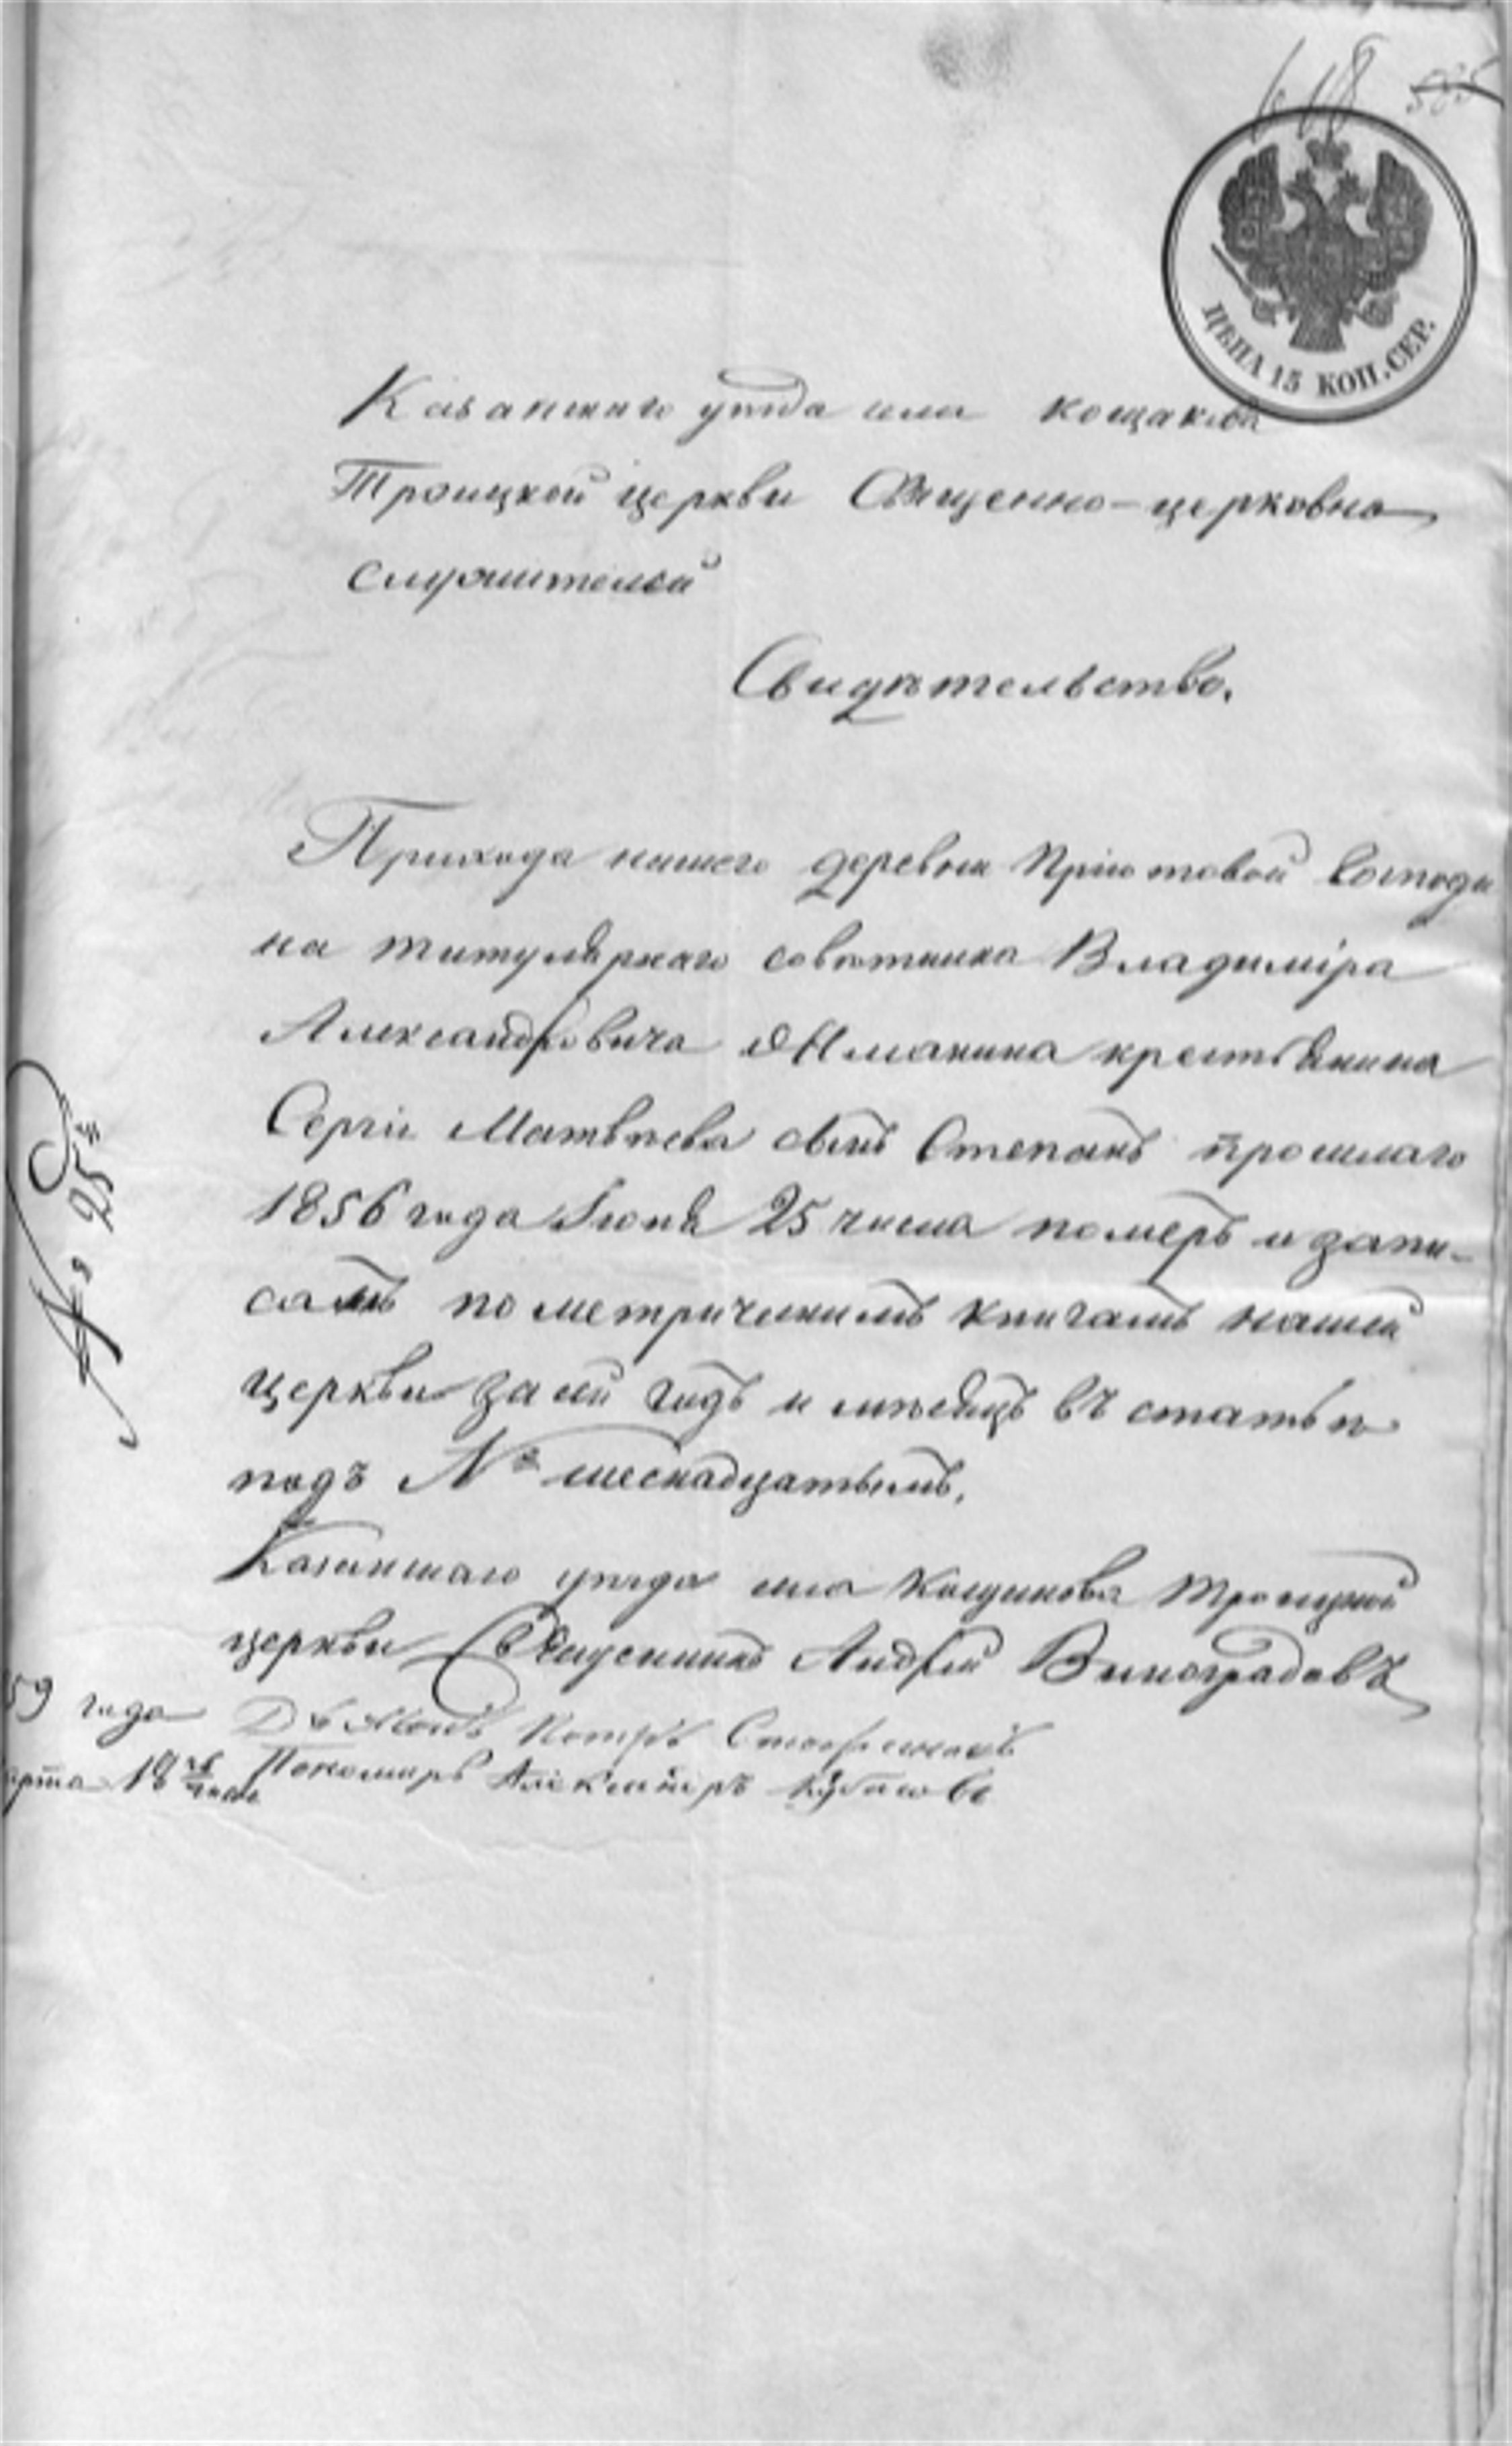 618 585
ЦѢНА 15 КОП. СЕР.
Казанскаго уѣзда села Кощакова
Троицкой церкви Священно-церковно
служителей
Свидѣтельство.
Прихода нашего деревни Пріютовой Господи
на титулярнаго совѣтника Владиміра
Александровича крестьянина
Сергія Матвѣева сынъ Степанъ прошлаго
1856 года Іюня 25 числа померъ и запи-
санъ по метрическимъ книгамъ нашей
церкви за сей годъ и мѣсяцъ въ статьѣ
подъ № шеснадцатымъ.
Казанскаго уѣзда села Кощакова Троицкой
церкви Священникъ Андрей Виноградовъ
59 года Дьяконъ Петръ
арта 18 числа Пономарь Александръ
№ 25й